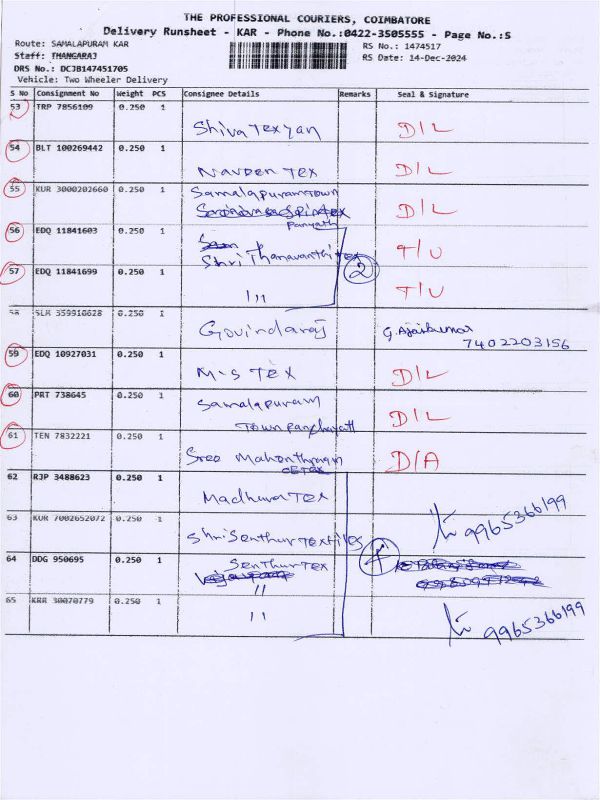 THE PROFESSIONAL COURIERS, COIMBATORE
Delivery Runsheet - KAR - Phone No.:0422-3505555 - Page No.:5
Route: SAMALAPURAM KAR
RS No.: 1474517
Staff: THANGARAJ
RS Date: 14-Dec-2024
DRS No.: DCJB147451705
Vehicle: Two Wheeler Delivery
S No Consignment No Weight PCS Consignee Details Remarks Seal & Signature
53 TRP 7856109 0.250 1
Shiva Texyan D/L
54 BLT 100269442 0.250 1
Naveen Tex D/L
55 KUR 3000202660 0.250 1 Samalapuram Town
D/L
Panyath
56 EDQ 11841603 0.250 1
Shri Thanavanthi Tex T/U
57 EDQ 11841699 0.250 1 2
111 T/U
58 SLR 359910628 0.250 1
Govindaraj G. Ajaikumar
7402203156
59 EDQ 10927031 0.250 1
M.S TEX D/L
60 PRT 738645 0.250 1 Samalapuram
Town panchayatt D/L
61 TEN 7832221 0.250 1
Sree D/A
TEX
62 RJP 3488623 0.250 1
Madhura Tex
63 KUR 7002652072 0.250 1 9965366199
Shri Senthur Textiles
64 DDG 950695 0.250 1 Senthur Tex 4
11
65 KRR 30070779 0.250 1
11 9965366199